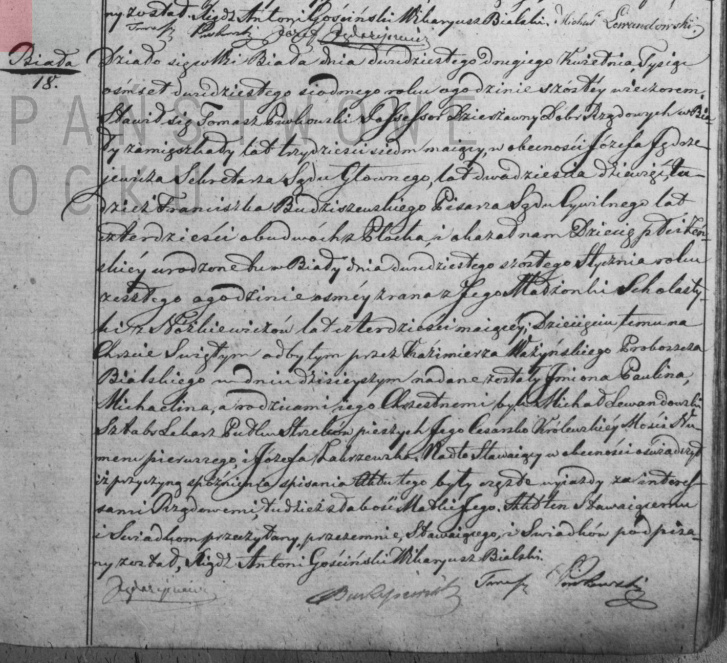 ny został Xiądz Antoni Gościński Wikaryusz Bialski. Michał Lewandowski
Biała
18.
Działo się we Wsi Biała dnia dwudziestego drugiego Kwietnia, Tysiąc
ośmset dwudziestego siodmego roku o godzinie szóstéy wieczorem,
Stawił się Tomasz Dzierżawny Dobr Rządowych w Bia-
ły zamięszkały lat trzydzieści siedm maiący, w obecności Józefa Jędrze-
jewicza Sekretarza Sądu Głownego, lat dwadzieścia dziewięć, tu-
dzież Franciszka Budziszewskiego Pisarza Sądu Cywilnego lat
czterdzieści obudwóch z Płocka, i okazał nam Dziecię płci Żeń-
skiéy urodzone tu w Biały dnia dwudziestego szóstego Stycznia roku
zeszłego o godzinie osméy z rana z Jego Małżonki Scholasty-
ki z lat czterdzieści maiącéy; Dziecięciu temu na
Chrzcie Swiętym odbytym przez Kazimierza Proboszcza
Bialskiego w dniu dzisieyszym nadane zostały Jmiona Paulina,
Michalina, a rodzicami jego Chrzestnemi byli Michał Lewandowski
Sztabs Lekarz Pułku Strzelców pieszych Jego Cesarsko Królewskiey Mości Nu-
meru pierwszego, i Józefa Nadto Stawaiący w obecności oświadczył
iż przyczyną spóźnienia spisania Aktu tego były częste wyiazdy za interes-
sami Rządowemi tudzież słabość Matki Jego. Akt ten Stawaiącemu
i Swiadkom przeczytany, przezemnie, Stawaiącego, i Swiadków podpisa-
ny został, Xiądz Antoni Gościński Wikaryusz Bialski.
PAŃSTWOWE
OCKU